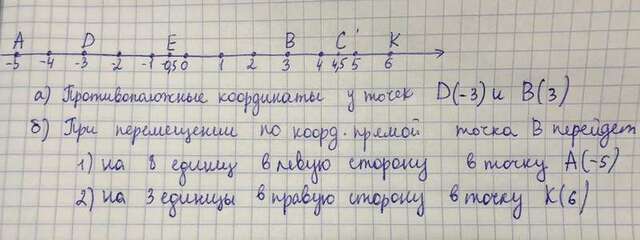 A D E B C K
-5 -4 -3 -2 -1 -0,5 0 1 2 3 4 4,5 5 6
а) Противоположные координаты у точек D(-3) и B(3)
б) При перемещении по коорд. прямой точка B перейдет
1) на 8 единиц в левую сторону в точку A(-5)
2) на 3 единицы в правую сторону в точку K(6)